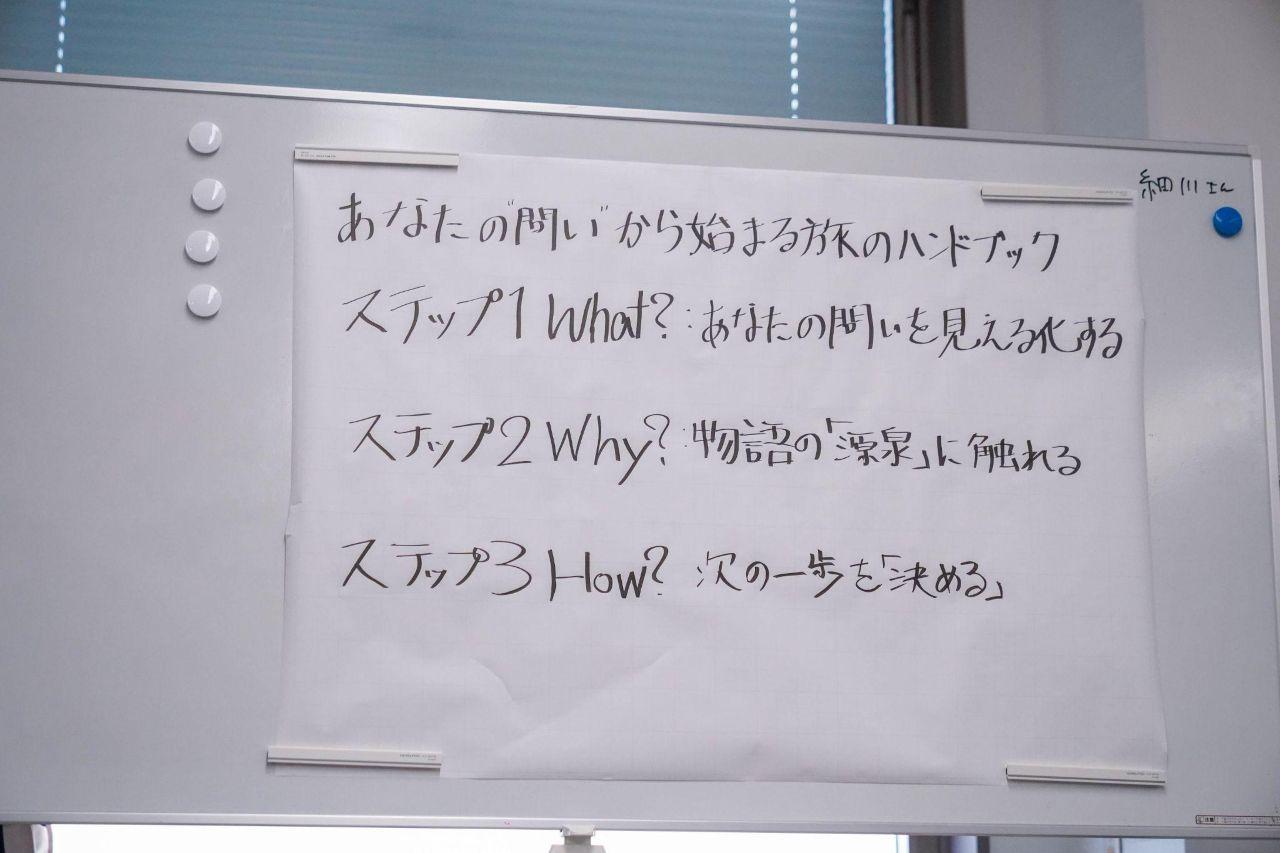 あなたの"問い"から始まる旅のハンドブック
ステップ1 What?:あなたの問いを見える化する
ステップ2 Why?:物語の「源泉」に触れる
ステップ3 How? 次の一歩を「決める」
細川さん